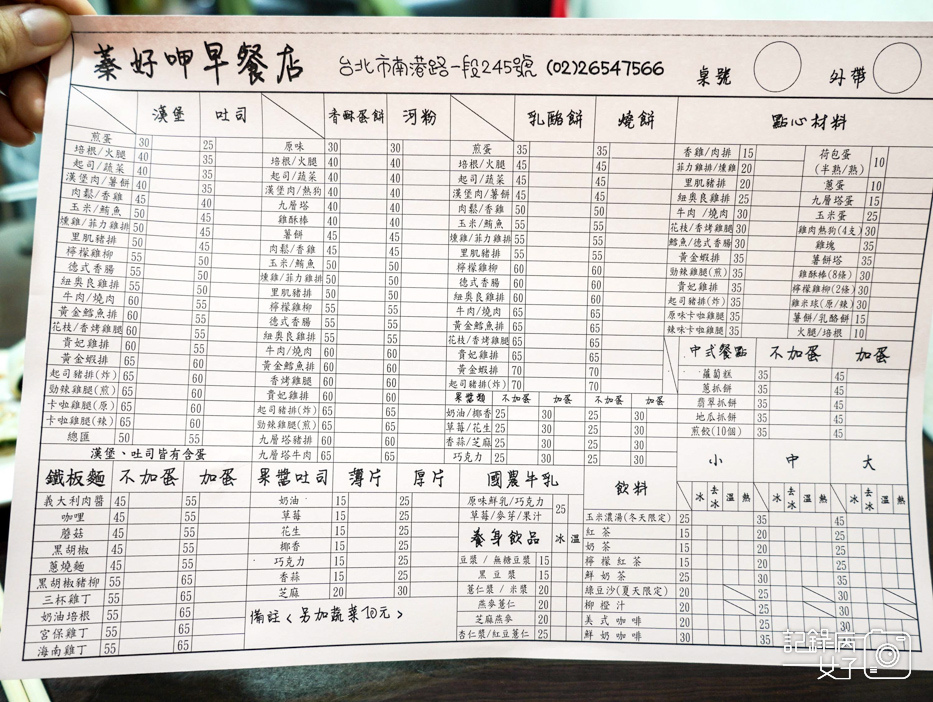 蓁好呷早餐店 台北市南港路一段245號 (02)26547566 桌號 外帶
漢堡 吐司
煎蛋 30 25
培根/火腿 40 35
起司/蔬菜 40 35
漢堡肉/薯餅 40 35
肉鬆/香雞 45 40
玉米/鮪魚 50 45
燻雞/菲力雞排 50 45
里肌豬排 50 45
檸檬雞柳 55 50
德式香腸 55 50
紐奧良雞排 55 50
牛肉/燒肉 60 55
黃金鱈魚排 60 55
花枝/香烤雞腿 60 55
貴妃雞排 60 55
黃金蝦排 65 60
起司豬排(炸) 65 60
勁辣雞腿(煎) 65 60
卡啦雞腿(原) 65 60
卡啦雞腿(辣) 65 60
總匯 50 55
漢堡、吐司皆有含蛋
香酥蛋餅 河粉
原味 30 30
培根/火腿 40 40
起司/蔬菜 40 40
漢堡肉/熱狗 40 40
九層塔 40 40
雞酥棒 40 40
薯餅 45 45
肉鬆/香雞 45 45
玉米/鮪魚 50 50
燻雞/菲力雞排 50 50
里肌豬排 50 50
檸檬雞柳 55 55
德式香腸 55 55
紐奧良雞排 55 55
牛肉/燒肉 60 60
黃金鱈魚排 60 60
香烤雞腿 60 60
貴妃雞排 60 60
起司豬排(炸) 65 65
勁辣雞腿(煎) 65 65
九層塔豬排 60 60
九層塔牛肉 65 65
乳酪餅 燒餅
煎蛋 35 35
培根/火腿 45 45
起司/蔬菜 45 45
漢堡肉/薯餅 45 45
肉鬆/香雞 50 50
玉米/鮪魚 55 55
燻雞/菲力雞排 55 55
里肌豬排 55 55
檸檬雞柳 60 60
德式香腸 60 60
紐奧良雞排 60 60
牛肉/燒肉 65 65
黃金鱈魚排 65 65
花枝/香烤雞腿 65 65
貴妃雞排 65 65
黃金蝦排 70 70
起司豬排(炸) 70 70
果醬類 不加蛋 加蛋 不加蛋 加蛋
奶油/椰香 25 30 25 30
草莓/花生 25 30 25 30
香蒜/芝麻 25 30 25 30
巧克力 25 30 25 30
點心材料
香雞/肉排 15 荷包蛋(半熟/熟) 10
菲力雞排/燻雞 20
里肌豬排 20 蔥蛋 10
紐奧良雞排 25 九層塔蛋 15
牛肉/燒肉 30 玉米蛋 25
花枝/香烤雞腿 30 雞肉熱狗(4支) 30
鱈魚/德式香腸 30 雞塊 35
黃金蝦排 35 薯餅塔 35
勁辣雞腿(煎) 35 雞酥棒(8條) 30
貴妃雞排 35 檸檬雞柳(2條) 30
起司豬排(炸) 35 雞米球(原/辣) 30
原味卡啦雞腿 35 薯餅/乳酪餅 15
辣味卡啦雞腿 35 火腿/培根 10
中式餐點 不加蛋 加蛋
蘿蔔糕 35 45
蔥抓餅 35 45
翡翠抓餅 35 45
地瓜抓餅 35 45
煎餃(10個) 35 45
鐵板麵 不加蛋 加蛋
義大利肉醬 45 55
咖哩 45 55
蘑菇 45 55
黑胡椒 45 55
蔥燒麵 45 55
黑胡椒豬柳 55 65
三杯雞丁 55 65
奶油培根 55 65
宮保雞丁 55 65
海南雞丁 55 65
果醬吐司 薄片 厚片
奶油 15 25
草莓 15 25
花生 15 25
椰香 15 25
巧克力 15 25
香蒜 15 25
芝麻 20 30
備註<另加蔬菜10元>
國農牛乳
原味鮮乳/巧克力
草莓/麥芽/果汁 25
養身飲品 冰 溫
豆漿/無糖豆漿 15
黑豆漿 15
薏仁漿/米漿 20
燕麥薏仁 20
芝麻燕麥 20
杏仁漿/紅豆薏仁 25
飲料 小 中 大
冰 去冰 溫 熱 冰 去冰 溫 熱 冰 去冰 溫 熱
玉米濃湯(冬天限定) 25 35 45
紅茶 15 20 25
奶茶 15 20 25
檸檬紅茶 15 20 25
鮮奶茶 25 35
綠豆沙(夏天限定) 20 25 30
柳橙汁 20 25 30
美式咖啡 20 25
鮮奶咖啡 30 35
記錄丙女子